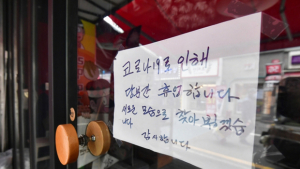 코로나19로 인해
당분간 휴업합니다
새로운 모습으로 찾아 뵙겠습
니다
감사합니다.